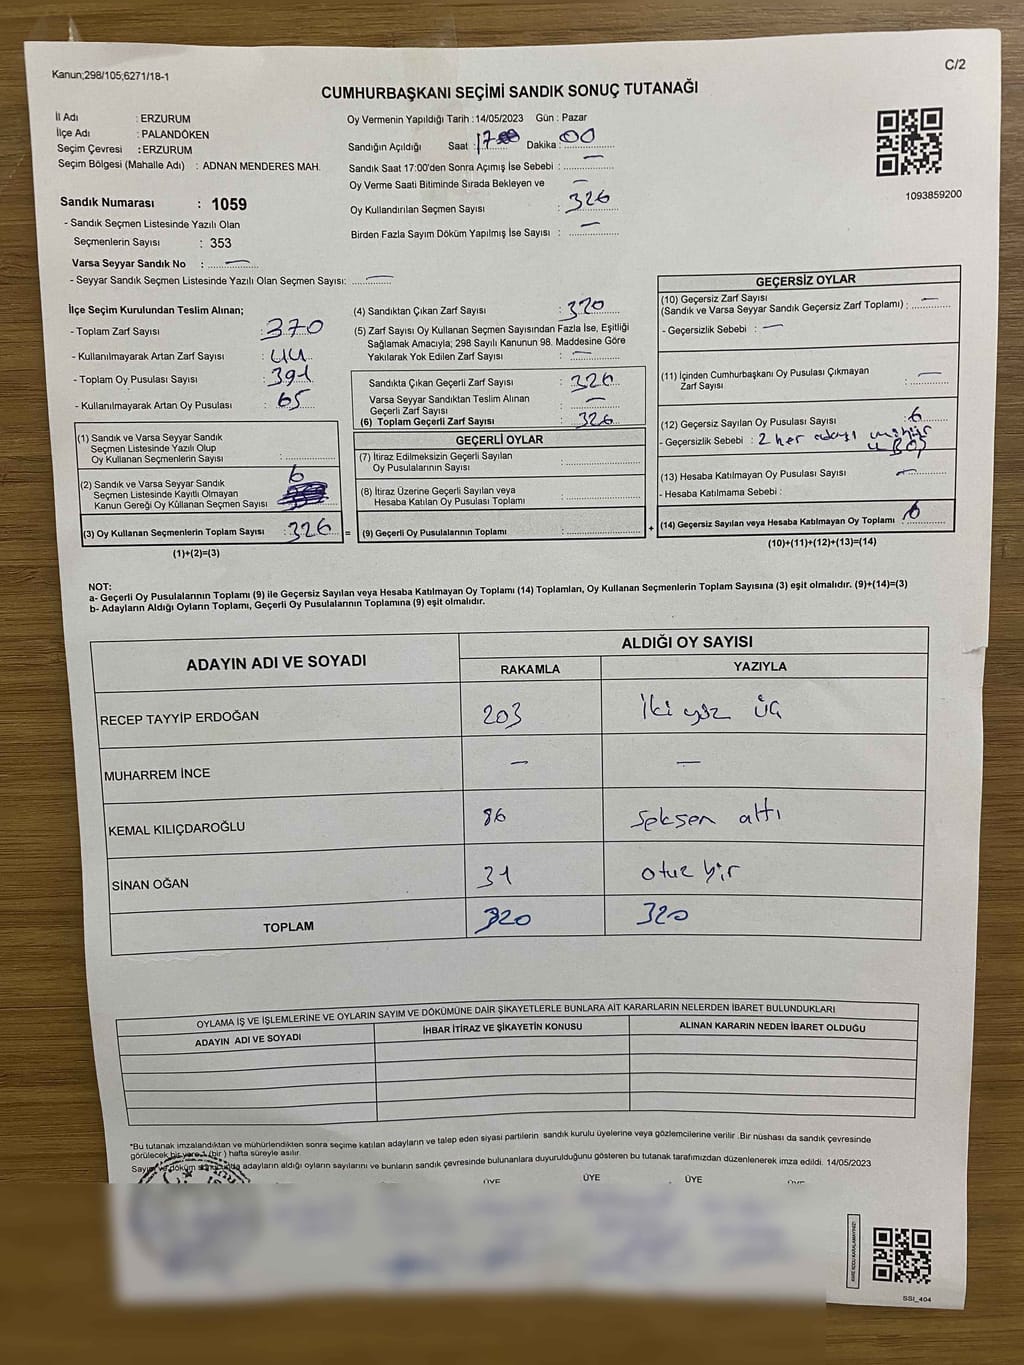 Kanun;298/105;6271/18-1
C/2
CUMHURBAŞKANI SEÇİMİ SANDIK SONUÇ TUTANAĞI
İl Adı : ERZURUM
İlçe Adı : PALANDÖKEN
Seçim Çevresi : ERZURUM
Seçim Bölgesi (Mahalle Adı) : ADNAN MENDERES MAH.
Sandık Numarası : 1059
- Sandık Seçmen Listesinde Yazılı Olan
Seçmenlerin Sayısı : 353
Varsa Seyyar Sandık No : —
- Seyyar Sandık Seçmen Listesinde Yazılı Olan Seçmen Sayısı: —
Oy Vermenin Yapıldığı Tarih : 14/05/2023 Gün : Pazar
Sandığın Açıldığı Saat : 17 Dakika : 00
Sandık Saat 17:00'den Sonra Açımış İse Sebebi : —
Oy Verme Saati Bitiminde Sırada Bekleyen ve —
Oy Kullandırılan Seçmen Sayısı : 326
Birden Fazla Sayım Döküm Yapılmış İse Sayısı : —
1093859200
İlçe Seçim Kurulundan Teslim Alınan;
- Toplam Zarf Sayısı : 370
- Kullanılmayarak Artan Zarf Sayısı : 44
- Toplam Oy Pusulası Sayısı : 391
- Kullanılmayarak Artan Oy Pusulası : 65
(1) Sandık ve Varsa Seyyar Sandık
Seçmen Listesinde Yazılı Olup
Oy Kullanan Seçmenlerin Sayısı :
(2) Sandık ve Varsa Seyyar Sandık
Seçmen Listesinde Kayıtlı Olmayan
Kanun Gereği Oy Küllanan Seçmen Sayısı : 6
(3) Oy Kullanan Seçmenlerin Toplam Sayısı : 326 =
(1)+(2)=(3)
(4) Sandıktan Çıkan Zarf Sayısı : 320
(5) Zarf Sayısı Oy Kullanan Seçmen Sayısından Fazla İse, Eşitliği
Sağlamak Amacıyla; 298 Sayılı Kanunun 98. Maddesine Göre
Yakılarak Yok Edilen Zarf Sayısı : —
Sandıkta Çıkan Geçerli Zarf Sayısı : 326
Varsa Seyyar Sandıktan Teslim Alınan
Geçerli Zarf Sayısı : —
(6) Toplam Geçerli Zarf Sayısı : 326
GEÇERLİ OYLAR
(7) İtiraz Edilmeksizin Geçerli Sayılan
Oy Pusulalarının Sayısı :
(8) İtiraz Üzerine Geçerli Sayılan veya
Hesaba Katılan Oy Pusulası Toplamı :
(9) Geçerli Oy Pusulalarının Toplamı : +
GEÇERSİZ OYLAR
(10) Geçersiz Zarf Sayısı
(Sandık ve Varsa Seyyar Sandık Geçersiz Zarf Toplamı) : —
- Geçersizlik Sebebi : —
(11) İçinden Cumhurbaşkanı Oy Pusulası Çıkmayan
Zarf Sayısı : —
(12) Geçersiz Sayılan Oy Pusulası Sayısı : 6
- Geçersizlik Sebebi : 2 her adayı
(13) Hesaba Katılmayan Oy Pusulası Sayısı : —
- Hesaba Katılmama Sebebi :
(14) Geçersiz Sayılan veya Hesaba Katılmayan Oy Toplamı : 6
(10)+(11)+(12)+(13)=(14)
NOT:
a- Geçerli Oy Pusulalarının Toplamı (9) ile Geçersiz Sayılan veya Hesaba Katılmayan Oy Toplamı (14) Toplamları, Oy Kullanan Seçmenlerin Toplam Sayısına (3) eşit olmalıdır. (9)+(14)=(3)
b- Adayların Aldığı Oyların Toplamı, Geçerli Oy Pusulalarının Toplamına (9) eşit olmalıdır.
ADAYIN ADI VE SOYADI
ALDIĞI OY SAYISI
RAKAMLA YAZIYLA
RECEP TAYYİP ERDOĞAN 203 İki yüz üç
MUHARREM İNCE — —
KEMAL KILIÇDAROĞLU 86 seksen altı
SİNAN OĞAN 31 otuz bir
TOPLAM 320 320
OYLAMA İŞ VE İŞLEMLERİNE VE OYLARIN SAYIM VE DÖKÜMÜNE DAİR ŞİKAYETLERLE BUNLARA AİT KARARLARIN NELERDEN İBARET BULUNDUKLARI
ADAYIN ADI VE SOYADI İHBAR İTİRAZ VE ŞİKAYETİN KONUSU ALINAN KARARIN NEDEN İBARET OLDUĞU
*Bu tutanak imzalandıktan ve mühürlendikten sonra seçime katılan adayların ve talep eden siyasi partilerin sandık kurulu üyelerine veya gözlemcilerine verilir .Bir nüshası da sandık çevresinde
görülecek bir yere 1 (bir ) hafta süreyle asılır.
Sayım ve döküm sonucunda adayların aldığı oyların sayılarını ve bunların sandık çevresinde bulunanlara duyurulduğunu gösteren bu tutanak tarafımızdan düzenlenerek imza edildi. 14/05/2023
ÜYE ÜYE ÜYE
SSI_404